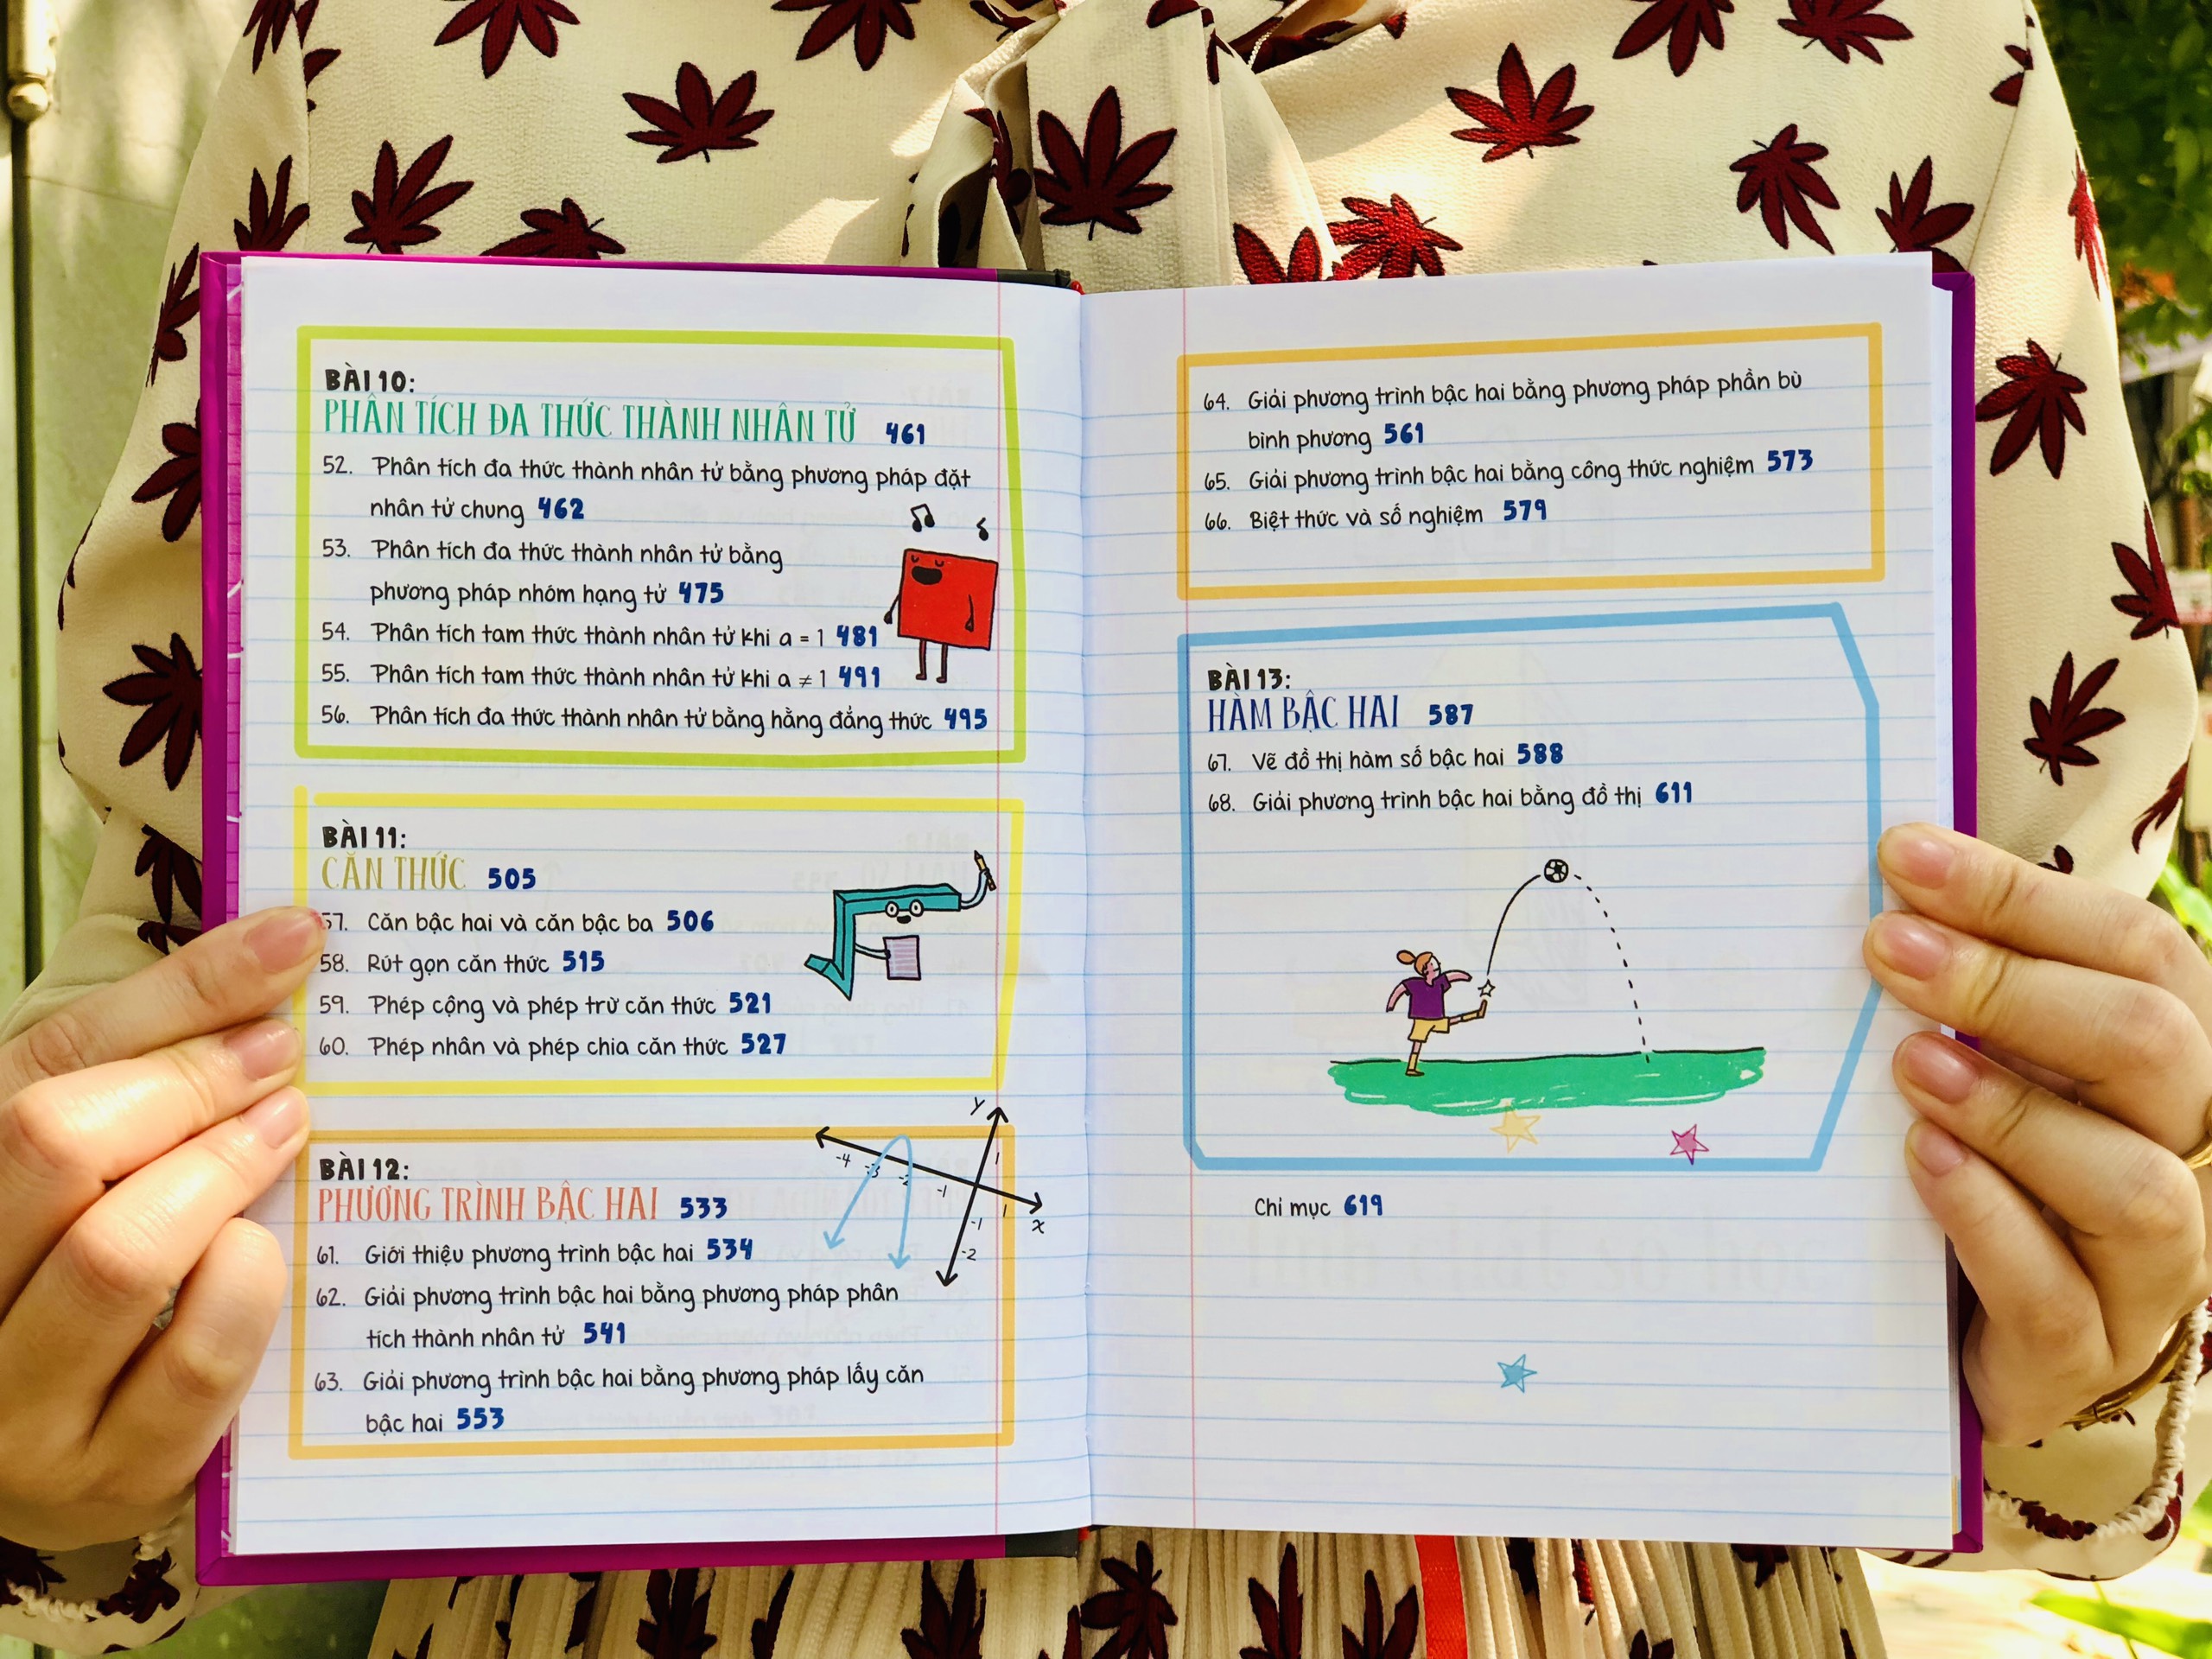 BÀI 10:
PHÂN TÍCH ĐA THỨC THÀNH NHÂN TỬ 461
52. Phân tích đa thức thành nhân tử bằng phương pháp đặt
nhân tử chung 462
53. Phân tích đa thức thành nhân tử bằng
phương pháp nhóm hạng tử 475
54. Phân tích tam thức thành nhân tử khi a = 1 481
55. Phân tích tam thức thành nhân tử khi a ≠ 1 491
56. Phân tích đa thức thành nhân tử bằng hằng đẳng thức 495
BÀI 11:
CĂN THỨC 505
57. Căn bậc hai và căn bậc ba 506
58. Rút gọn căn thức 515
59. Phép cộng và phép trừ căn thức 521
60. Phép nhân và phép chia căn thức 527
BÀI 12:
PHƯƠNG TRÌNH BẬC HAI 533
61. Giới thiệu phương trình bậc hai 534
62. Giải phương trình bậc hai bằng phương pháp phân
tích thành nhân tử 541
63. Giải phương trình bậc hai bằng phương pháp lấy căn
bậc hai 553
y
-4 -3 -2 -1 1
x
1
-1
-2
64. Giải phương trình bậc hai bằng phương pháp phần bù
bình phương 561
65. Giải phương trình bậc hai bằng công thức nghiệm 573
66. Biệt thức và số nghiệm 579
BÀI 13:
HÀM BẬC HAI 587
67. Vẽ đồ thị hàm số bậc hai 588
68. Giải phương trình bậc hai bằng đồ thị 611
Chỉ mục 619